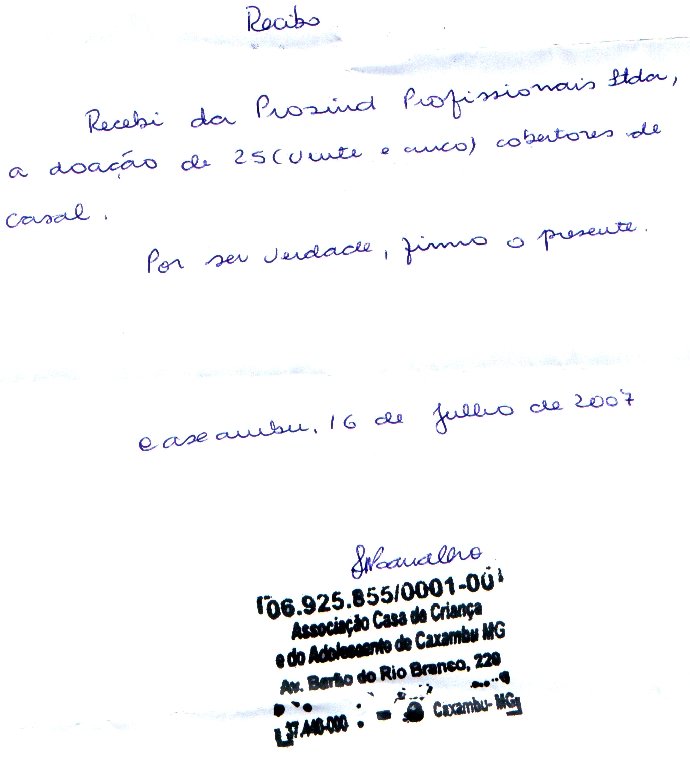 Recibo
Recebi da Prosind Profissionais Ltda,
a doação de 25 (vinte e cinco) cobertores de
casal.
Por ser verdade, firmo o presente.
Caxambu, 16 de Julho de 2007
06.925.855/0001-00
Associação Casa da Criança
e do Adolescente de Caxambu MG
Av. Barão do Rio Branco, 229
37.440-000 - Caxambu- MG